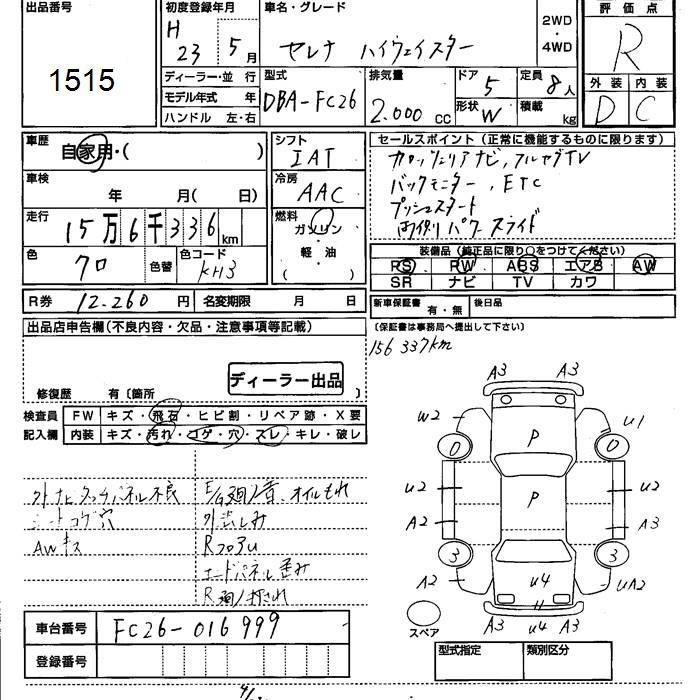 出品番号
1515
初度登録年月
H 23 5月
車名・グレード
セレナ ハイウェイスター
2WD
・
4WD
評価点
R
外装 内装
D C
ディーラー・並行
モデル年式 年
ハンドル 左・右
型式
DBA-FC26
排気量
2.000 cc
ドア 5
形状 W
定員 8人
積載 kg
車歴
自家用・( )
車検
年 月( 日)
走行
15万6千336km
色 クロ 色替
色コード KH3
シフト
IAT
冷房
AAC
燃料
ガソリン
・
軽・油
( )
セールスポイント(正常に機能するものに限ります)
カロッツェリアナビ,フルセグTV
バックモニター,ETC
プッシュスタート
パワースライド
装備品(純正品に限り○をつけてください)
PS PW ABS エアB AW
SR ナビ TV カワ
R券 12.260円 名変期限 月 日
新車保証書 有・無 後日品
(保証書は事務局へ提出して下さい)
156337km
出品店申告欄(不良内容・欠品・注意事項等記載)
ディーラー出品
修復歴 有〔箇所 〕
検査員
記入欄
FW キズ・飛石・ヒビ割・リペア跡・X要
内装 キズ・汚れ・コゲ・穴・スレ・キレ・破レ
外ナビタッチパネル不良
シートコゲ穴
AWキズ
E/G廻り音、オイルもれ
Rフロアu
エンドパネル歪み
A3 A3
W2 P U1
0 0
U2 P U2
A2 A3
3 3
A2 U4 UA2
A3 U4 A3
スペア
車台番号 FC26-016999
登録番号
型式指定 類別区分